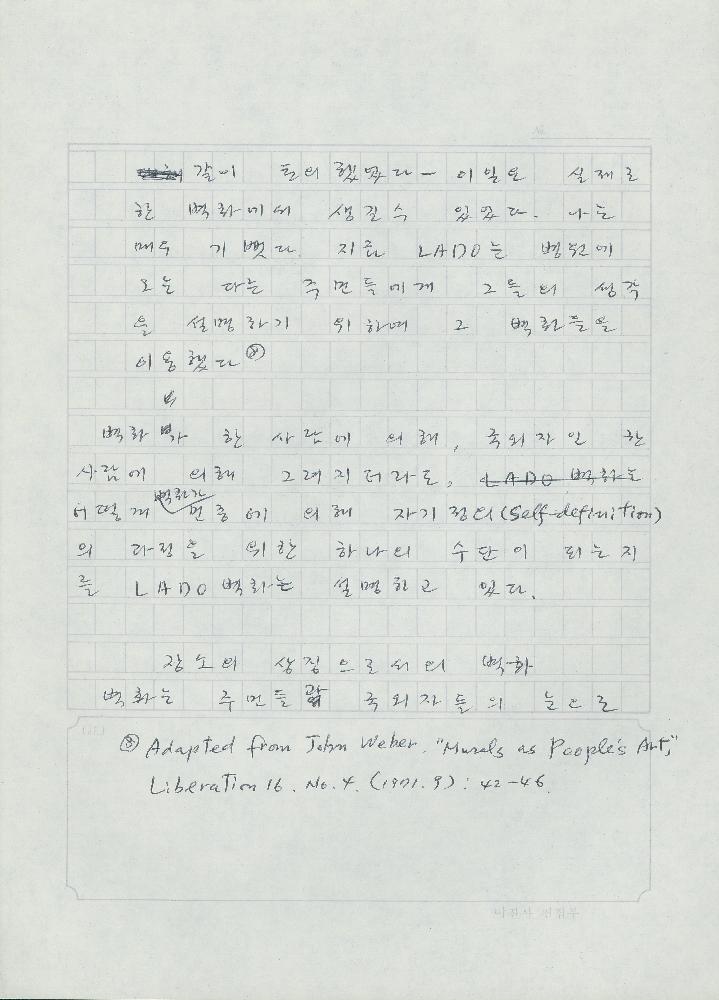 같이 토의했었다— 이일은 실제로
한 벽화에서 생길수 있었다. 나는
매우 기뻤다. 지금 LADO는 병원에
오는 다른 주민들에게 그들의 생각
을 설명하기 위하여 그 벽화들을
이용했다 ⑧
벽화가 한 사람에 의해, 국외자인 한
사람에 의해 그려지더라도, LADO 벽화는
어떻게 벽화가 민중에 의해 자기정의(Self-definition)
의 과정을 위한 하나의 수단이 되는지
를 LADO 벽화는 설명하고 있다.
장소의 상징으로서의 벽화
벽화는 주민들과 국외자들의 눈으로
⑧ Adapted from John Weber. "Murals as People's Art,"
Liberation 16. No. 4. (1971. 9) : 42-46.